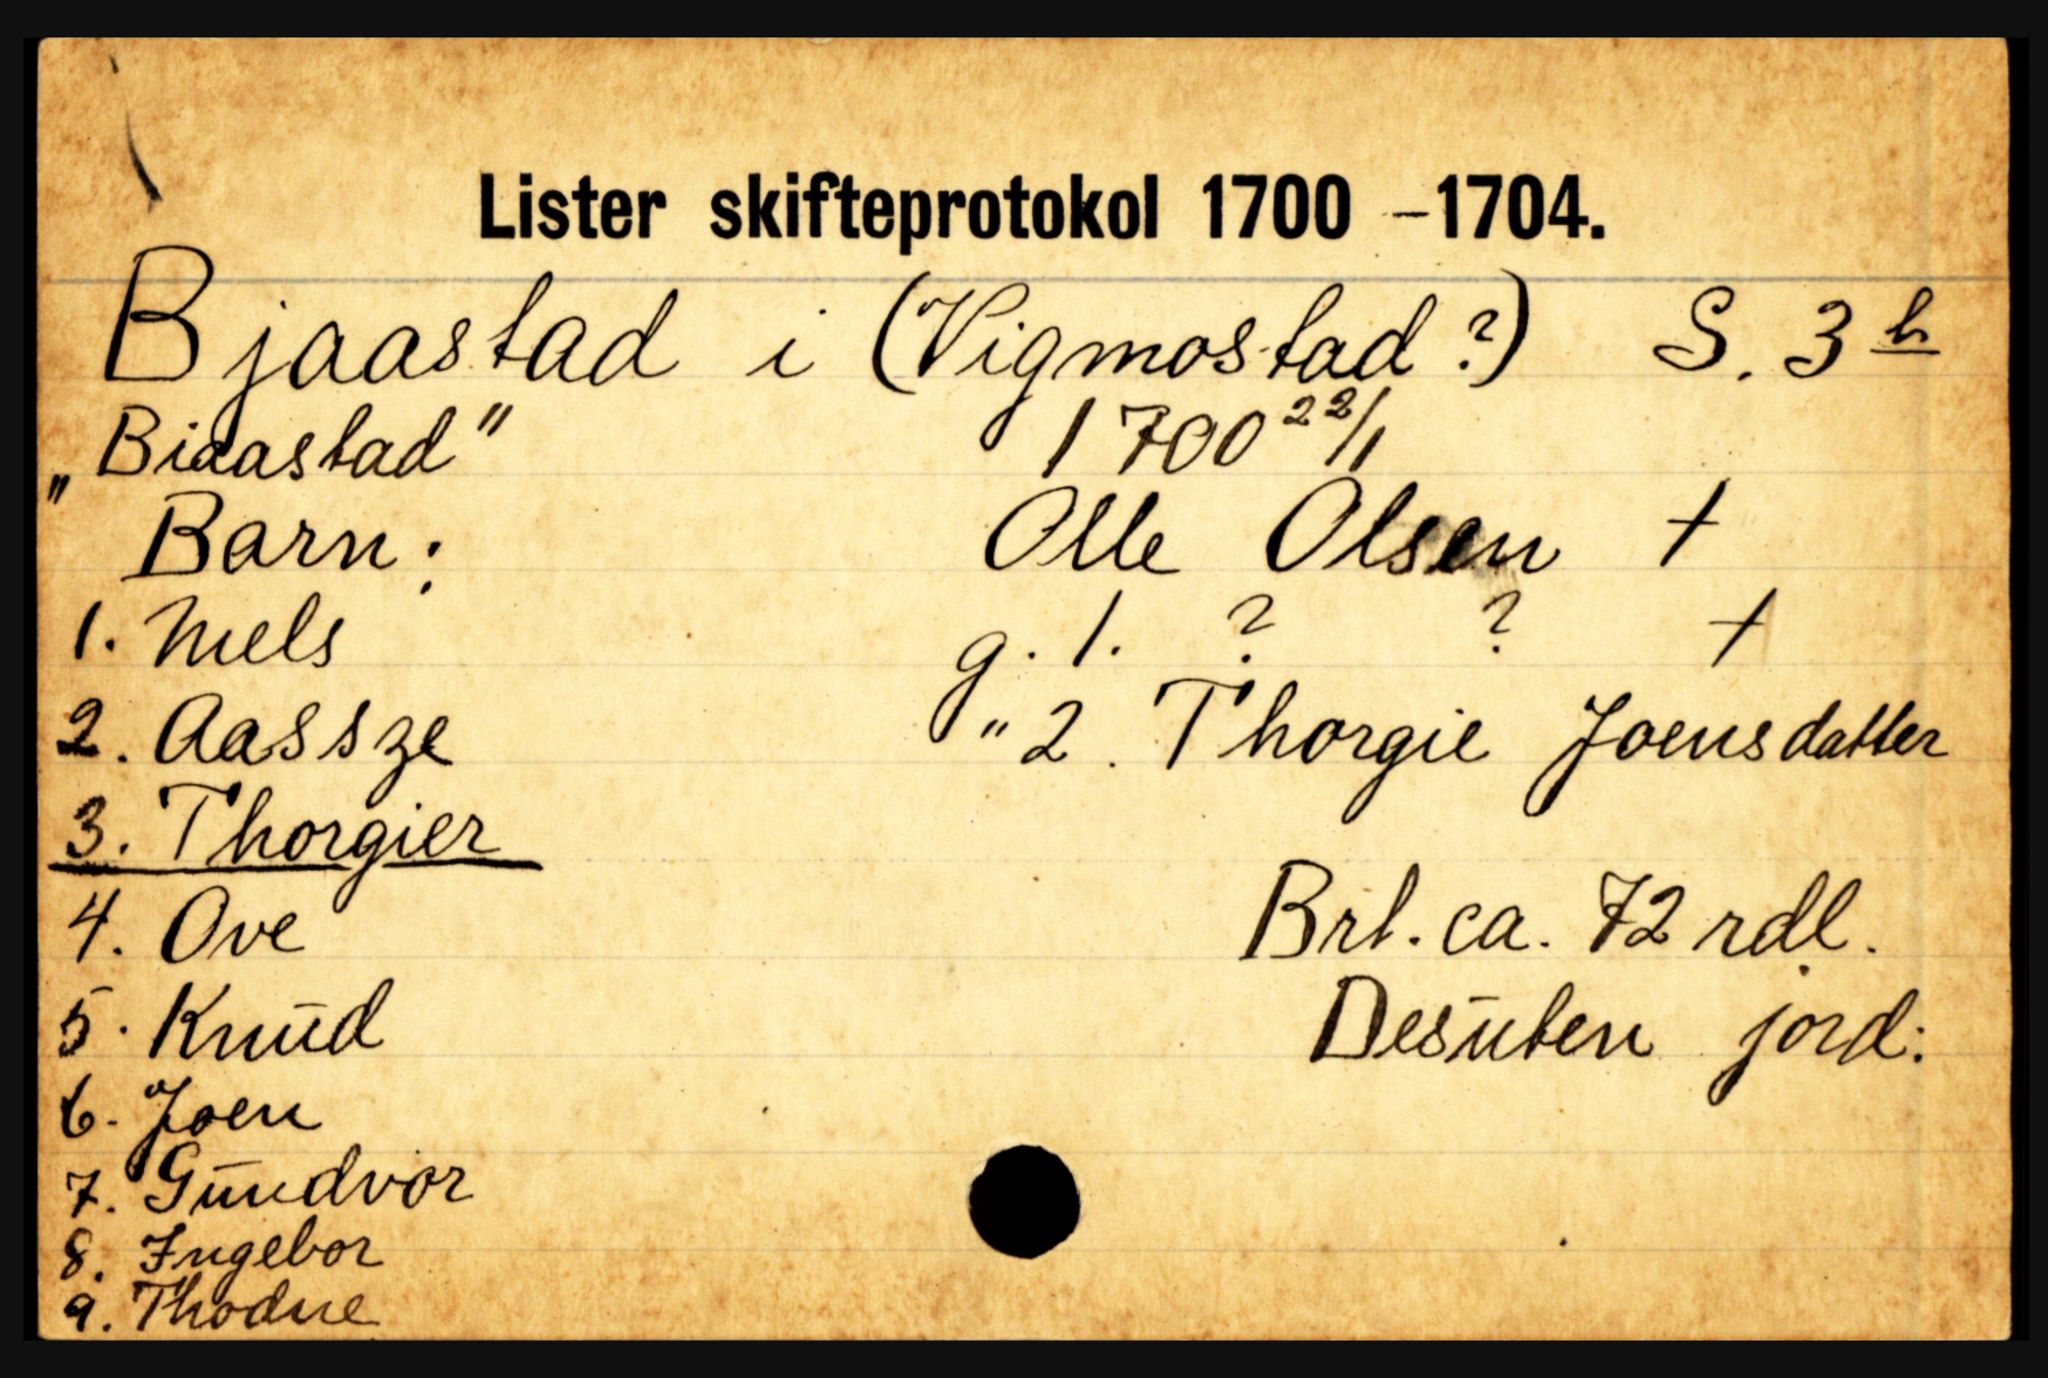 Lister skifteprotokol 1700 - 1704.
Bjaastad i (Vigmostad?) S. 3 b
"Biaastad" 1700 22/1
Barn: Olle Olsen +
1. Niels g. 1. ? ? +
2. Aassze " 2. Thorgie Joensdatter
3. Thorgier
4. Ove Brt. ca. 72 rdl.
5. Knud Desuten jord:
6. Joen
7. Gundvor
8. Ingebor
9. Thodne